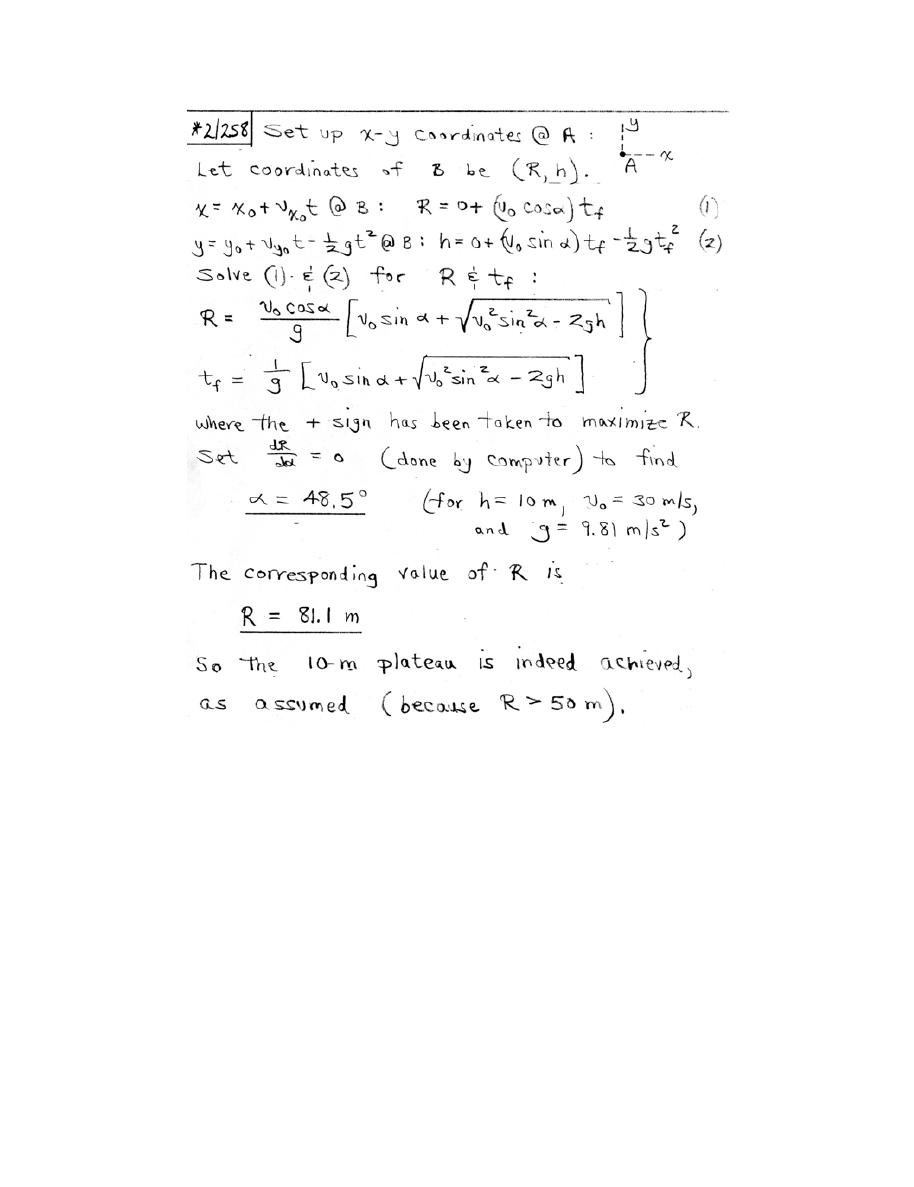 *2/258 Set up x-y coordinates @ A : y x A
Let coordinates of B be (R, h).
x = x₀ + v_x₀ t @ B : R = 0 + (v₀ cos α) t_f (1)
y = y₀ + v_y₀ t - ½ g t² @ B : h = 0 + (v₀ sin α) t_f - ½ g t_f² (2)
Solve (1) & (2) for R & t_f :
R = v₀ cos α / g [v₀ sin α + √(v₀² sin² α - 2gh)]
t_f = 1/g [v₀ sin α + √(v₀² sin² α - 2gh)]
where the + sign has been taken to maximize R.
Set dR/dα = 0 (done by computer) to find
α = 48.5° (for h = 10 m, v₀ = 30 m/s,
and g = 9.81 m/s²)
The corresponding value of R is
R = 81.1 m
So the 10-m plateau is indeed achieved,
as assumed (because R > 50 m).